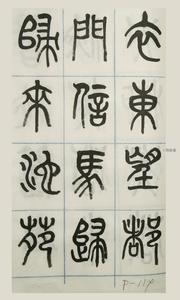 衣東望都
門信馬歸
歸來池苑
P-114